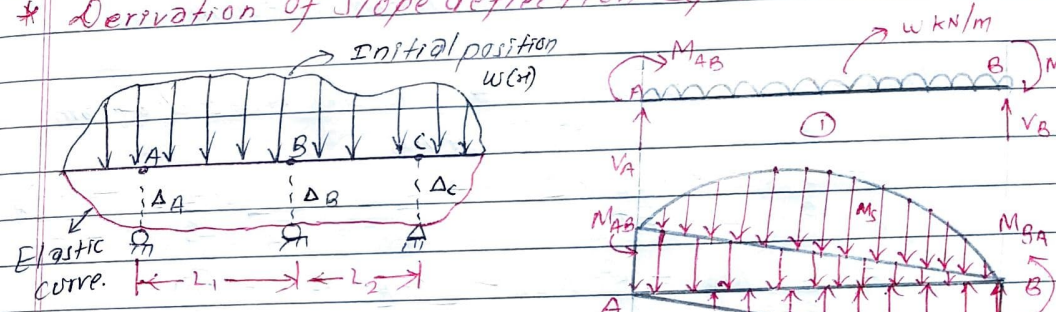 * Derivation of slope deflection
Initial position
w(x)
A B C
ΔA ΔB Δc
Elastic
curve.
L1 L2
w kN/m
MAB
A B M
1
VA VB
MAB Ms MBA
A B